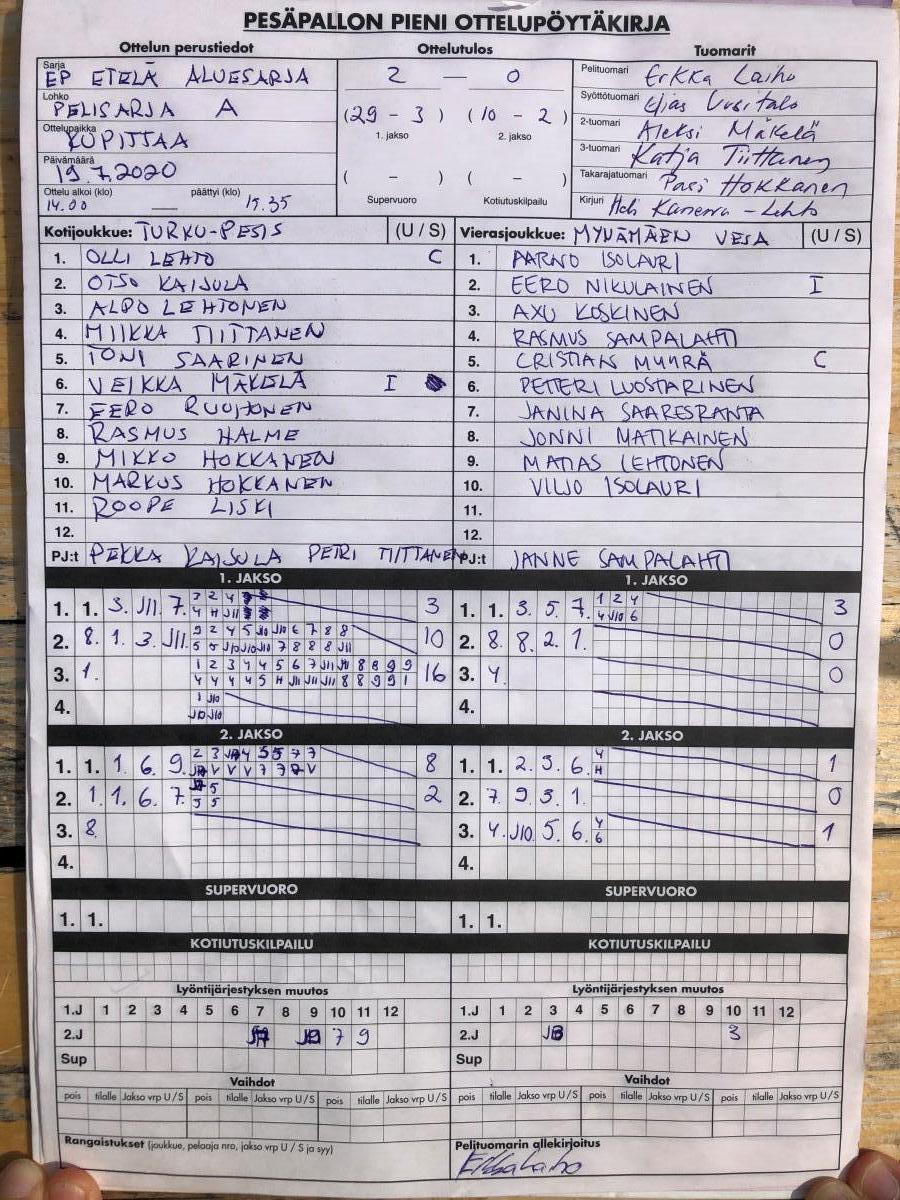 PESÄPALLON PIENI OTTELUPÖYTÄKIRJA
Ottelun perustiedot
Ottelutulos
Tuomarit
Sarja EP ETELÄ ALUESARJA
Lohko PELISARJA A
Ottelupaikka KUPITTAA
Päivämäärä 19.7.2020
Ottelu alkoi (klo) päättyi (klo)
14.00 — 15.35
2 — 0
(29 - 3) (10 - 2)
1. jakso 2. jakso
( - ) ( - )
Supervuoro Kotiutuskilpailu
Pelituomari Erkka Laiho
Syöttötuomari Elias Uusitalo
2-tuomari Aleksi Mäkelä
3-tuomari Katja Tiittanen
Takarajatuomari Pasi Hokkanen
Kirjuri Heli Kanerva-Lehto
Kotijoukkue: TURKU-PESIS (U / S)
1. OLLI LEHTO C
2. OTSO KAISULA
3. ALPO LEHTONEN
4. MIIKKA TIITTANEN
5. TONI SAARINEN
6. VEIKKA MÄKELÄ I
7. EERO RUOHONEN
8. RASMUS HALME
9. MIKKO HOKKANEN
10. MARKUS HOKKANEN
11. ROOPE LISKI
12.
PJ:t PEKKA KAISULA PETRI TIITTANEN
Vierasjoukkue: MYNÄMÄEN VESA (U / S)
1. AARNO ISOLAURI
2. EERO NIKULAINEN I
3. AXU KOSKINEN
4. RASMUS SAMPALAHTI
5. CRISTIAN MYYRÄ C
6. PETTERI LUOSTARINEN
7. JANINA SAARESRANTA
8. JONNI MATIKAINEN
9. MATIAS LEHTONEN
10. VILJO ISOLAURI
11.
12.
PJ:t JANNE SAMPALAHTI
1. JAKSO
1. 1. 3. J11. 7. 3
2. 8. 1. 3. J11. 10
3. 1. 16
4.
2. JAKSO
1. 1. 1. 6. 9. 8
2. 1. 1. 6. 7. 2
3. 8.
4.
SUPERVUORO
1. 1.
KOTIUTUSKILPAILU
1. JAKSO
1. 1. 3. 5. 7. 1 2 4 3
4 J10 6
2. 8. 8. 2. 1. 0
3. 4. 0
4.
2. JAKSO
1. 1. 2. 3. 6. 4 1
H
2. 7. 9. 3. 1. 0
3. 4. J10. 5. 6. 4 1
6
4.
SUPERVUORO
1. 1.
KOTIUTUSKILPAILU
Lyöntijärjestyksen muutos
1.J 1 2 3 4 5 6 7 8 9 10 11 12
2.J 7 9
Sup
Vaihdot
pois tilalle Jakso vrp U / S pois tilalle Jakso vrp U / S pois tilalle Jakso vrp U / S
Rangaistukset (joukkue, pelaaja nro, jakso vrp U / S ja syy)
Lyöntijärjestyksen muutos
1 2 3 4 5 6 7 8 9 10 11 12
3
Vaihdot
pois tilalle Jakso vrp U / S pois tilalle Jakso vrp U / S pois tilalle Jakso vrp U / S
Pelituomarin allekirjoitus